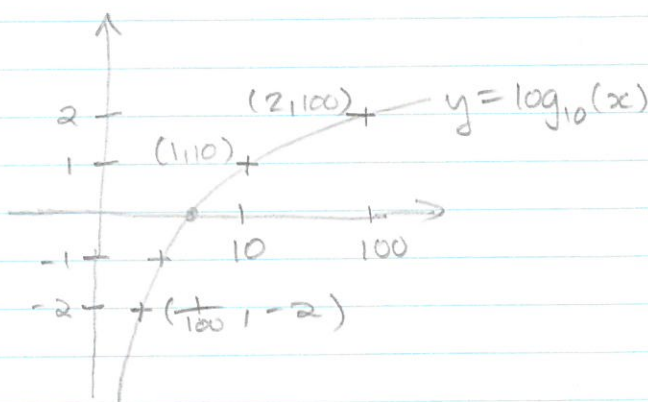 (2,100) y = log₁₀(x)
2
(1,10)
1
10 100
-1
-2 (1/100, -2)